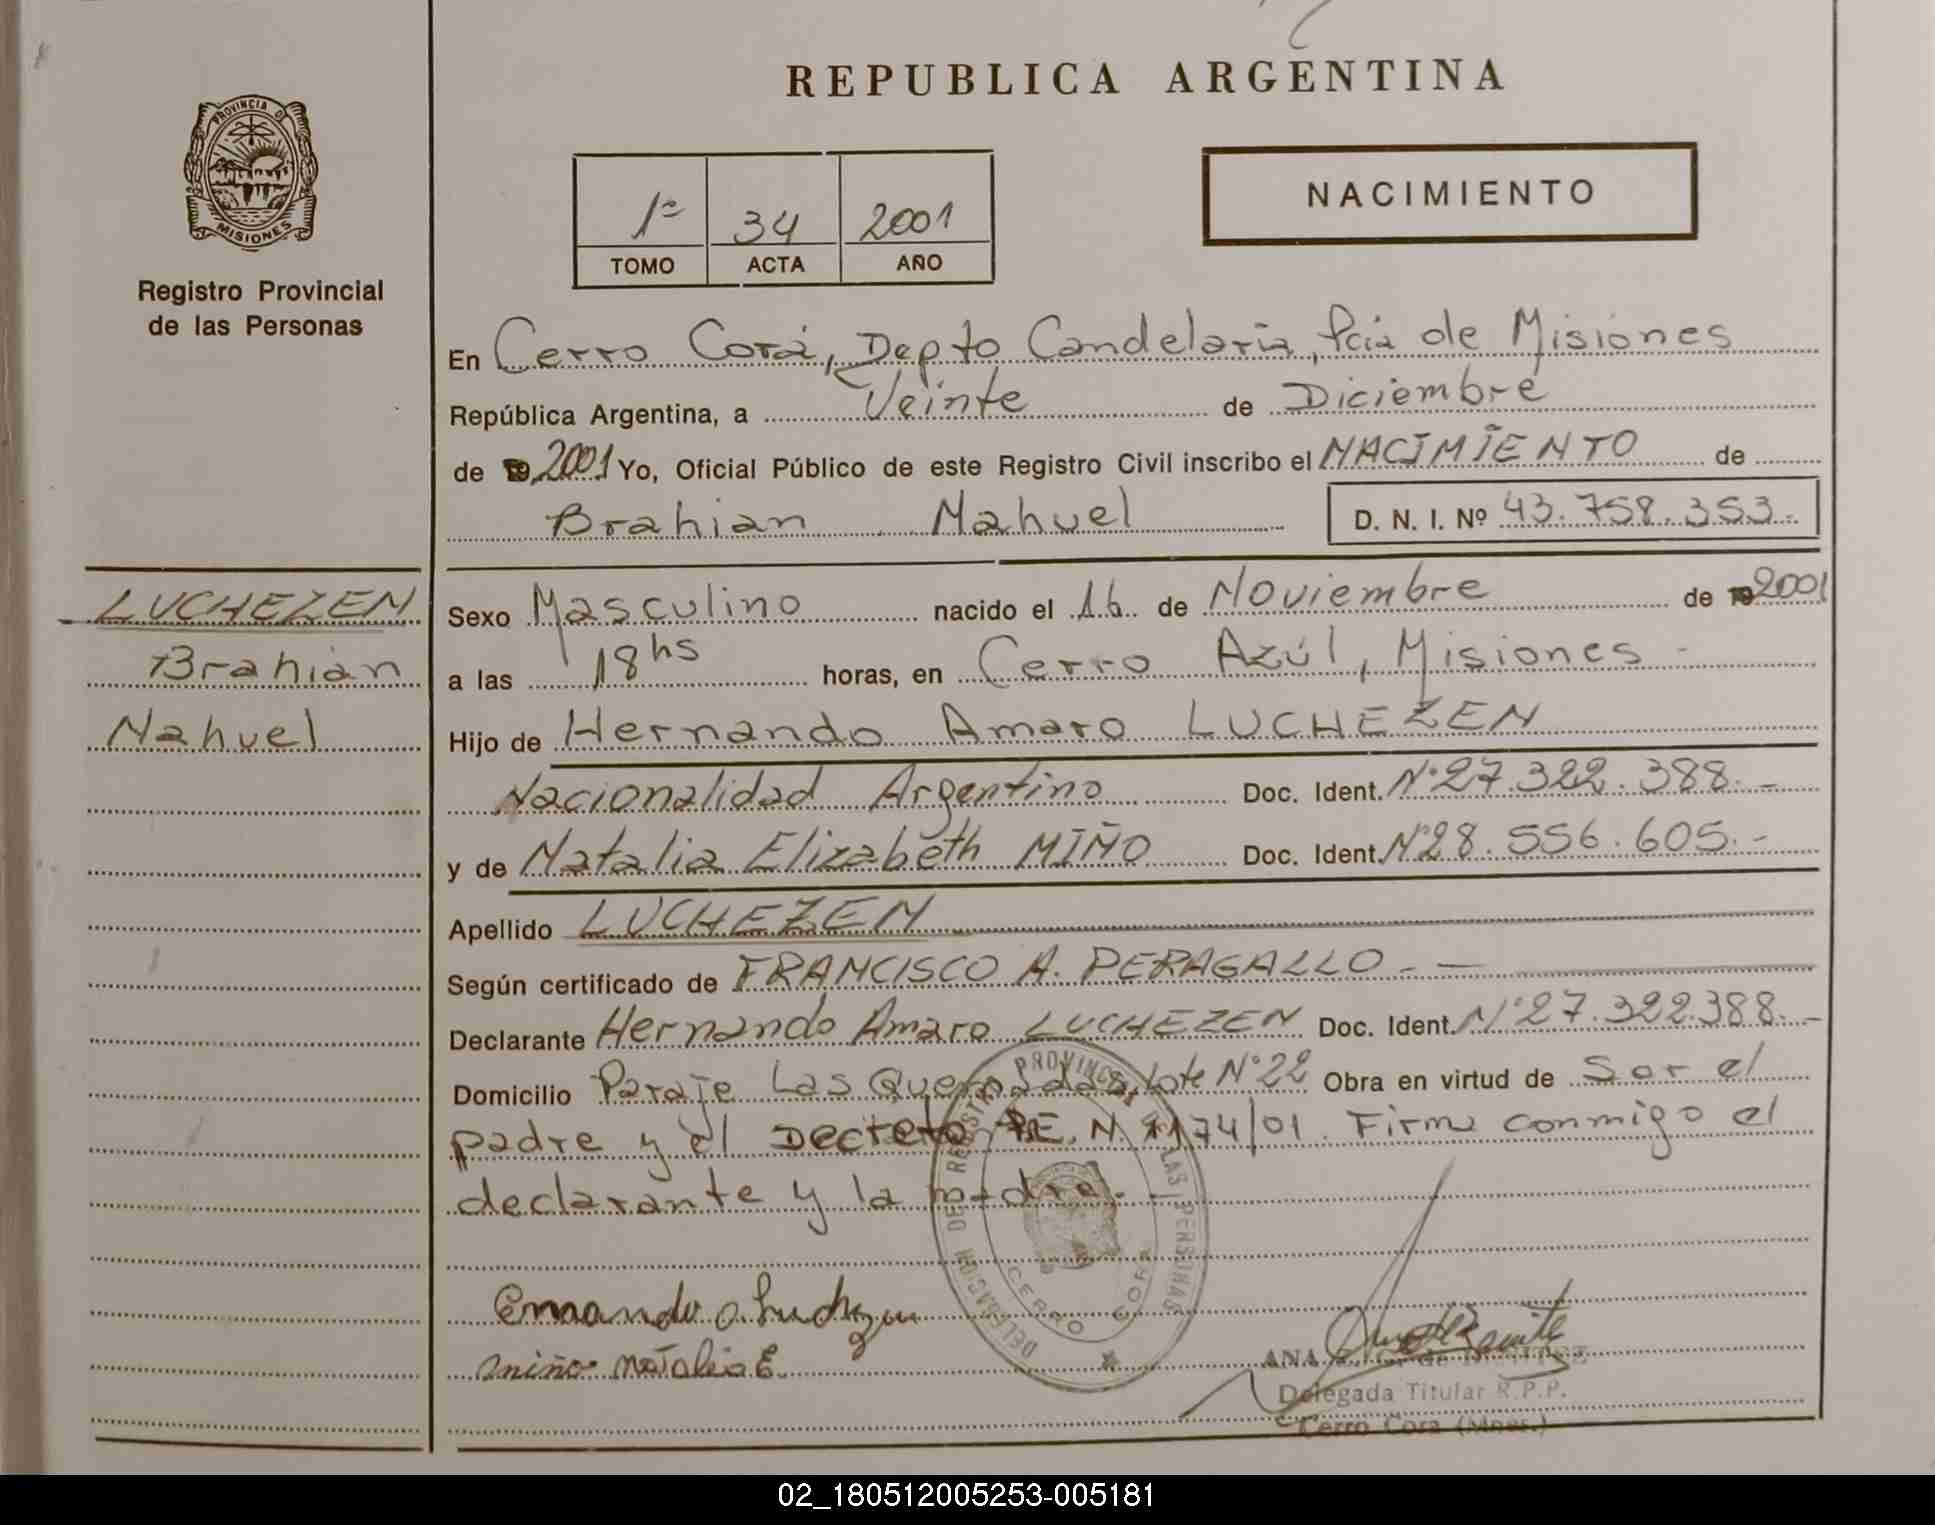 REPUBLICA ARGENTINA
PROVINCIA DE
MISIONES
Registro Provincial
de las Personas
1º 34 2001
TOMO ACTA AÑO
NACIMIENTO
En Cerro Corá, Depto Candelaria, Pcia de Misiones
República Argentina, a Veinte de Diciembre
de 19 2001 Yo, Oficial Público de este Registro Civil inscribo el NACIMIENTO de
Brahian Nahuel D. N. I. Nº 43.758.353.-
LUCHEZEN
Brahian
Nahuel
Sexo Masculino nacido el 16 de Noviembre de 19 2001
a las 18 hs horas, en Cerro Azúl, Misiones -
Hijo de Hernando Amaro LUCHEZEN
Nacionalidad Argentino Doc. Ident. Nº 27.322.388.-
y de Natalia Elizabeth MIÑO Doc. Ident. Nº 28.556.605.-
Apellido LUCHEZEN
Según certificado de FRANCISCO A. PERAGALLO.-
Declarante Hernando Amaro LUCHEZEN Doc. Ident. Nº 27.322.388.-
Domicilio Paraje Las Quemadas, Lote Nº 22 Obra en virtud de Ser el
padre y el Decreto P.E.N. 1174/01. Firma conmigo el
declarante y la madre.-
DELEGACION DE REGISTRO PROVINCIAL DE LAS PERSONAS
CERRO CORA
Miño Natalia E.
ANA de BENITEZ
Delegada Titular R.P.P.
Cerro Cora (Mnes.)
02_180512005253-005181